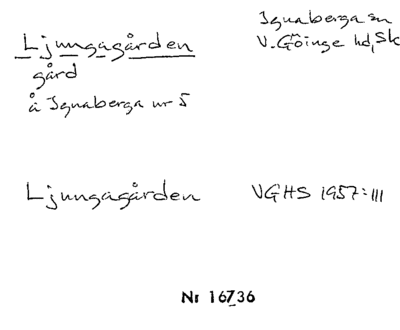 Ljungagården
Ignaberga sn
V. Göinge hd, Sk
gård
å Ignaberga nr 5
Ljungagården
VGHS 1957:III
Nr 16736